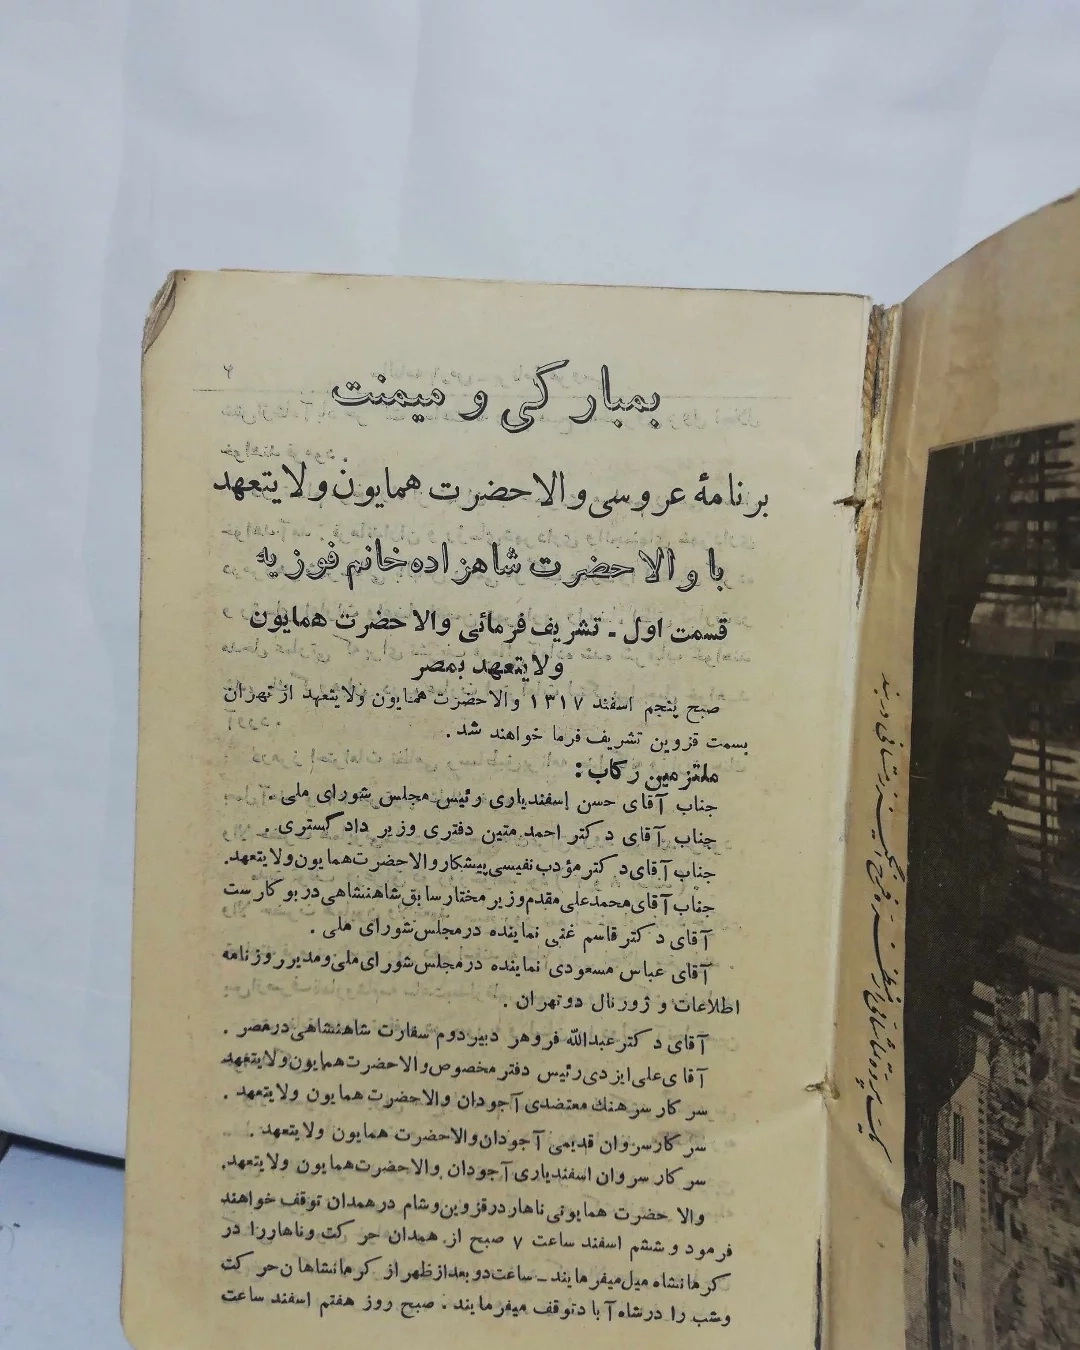 ۲
بمبارکی و میمنت
برنامهٔ عروسی والاحضرت همایون ولایتعهد
با والاحضرت شاهزاده خانم فوزیه
قسمت اول ـ تشریف فرمائی والاحضرت همایون
ولایتعهد بمصر
صبح پنجم اسفند ۱۳۱۷ والاحضرت همایون ولایتعهد از تهران
بسمت قزوین تشریف فرما خواهند شد .
ملتزمین رکاب :
جناب آقای حسن اسفندیاری رئیس مجلس شورای ملی .
جناب آقای دکتر احمد متین دفتری وزیر دادگستری .
جناب آقای دکتر مؤدب نفیسی پیشکار والاحضرت همایون ولایتعهد.
جناب آقای محمدعلی مقدم وزیر مختار سابق شاهنشاهی در بوکارست
آقای دکتر قاسم غنی نماینده در مجلس شورای ملی .
آقای عباس مسعودی نماینده در مجلس شورای ملی و مدیر روزنامه
اطلاعات و ژورنال دوتهران .
آقای دکتر عبدالله فروهر دبیر دوم سفارت شاهنشاهی در مصر .
آقای علی ایزدی رئیس دفتر مخصوص والاحضرت همایون ولایتعهد
سرکار سرهنك معتضدی آجودان والاحضرت همایون ولایتعهد .
سرکار سروان قدیمی آجودان والاحضرت همایون ولایتعهد .
سرکار سروان اسفندیاری آجودان والاحضرت همایون ولایتعهد.
والاحضرت همایونی ناهار در قزوین و شام در همدان توقف خواهند
فرمود و ششم اسفند ساعت ۷ صبح از همدان حرکت و ناهار را در
کرمانشاه میل میفرمایند ـ ساعت دو بعد از ظهر از کرمانشاهان حرکت
و شب را در شاه آباد توقف میفرمایند . صبح روز هفتم اسفند ساعت